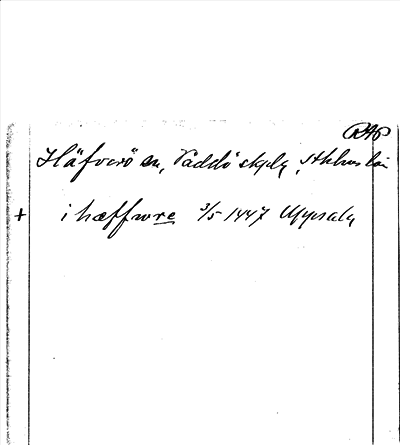 RAP
Häfverö sn, Väddö skplg, Sthlms län
+ i hæffwre 3/5 1447 Uppsala